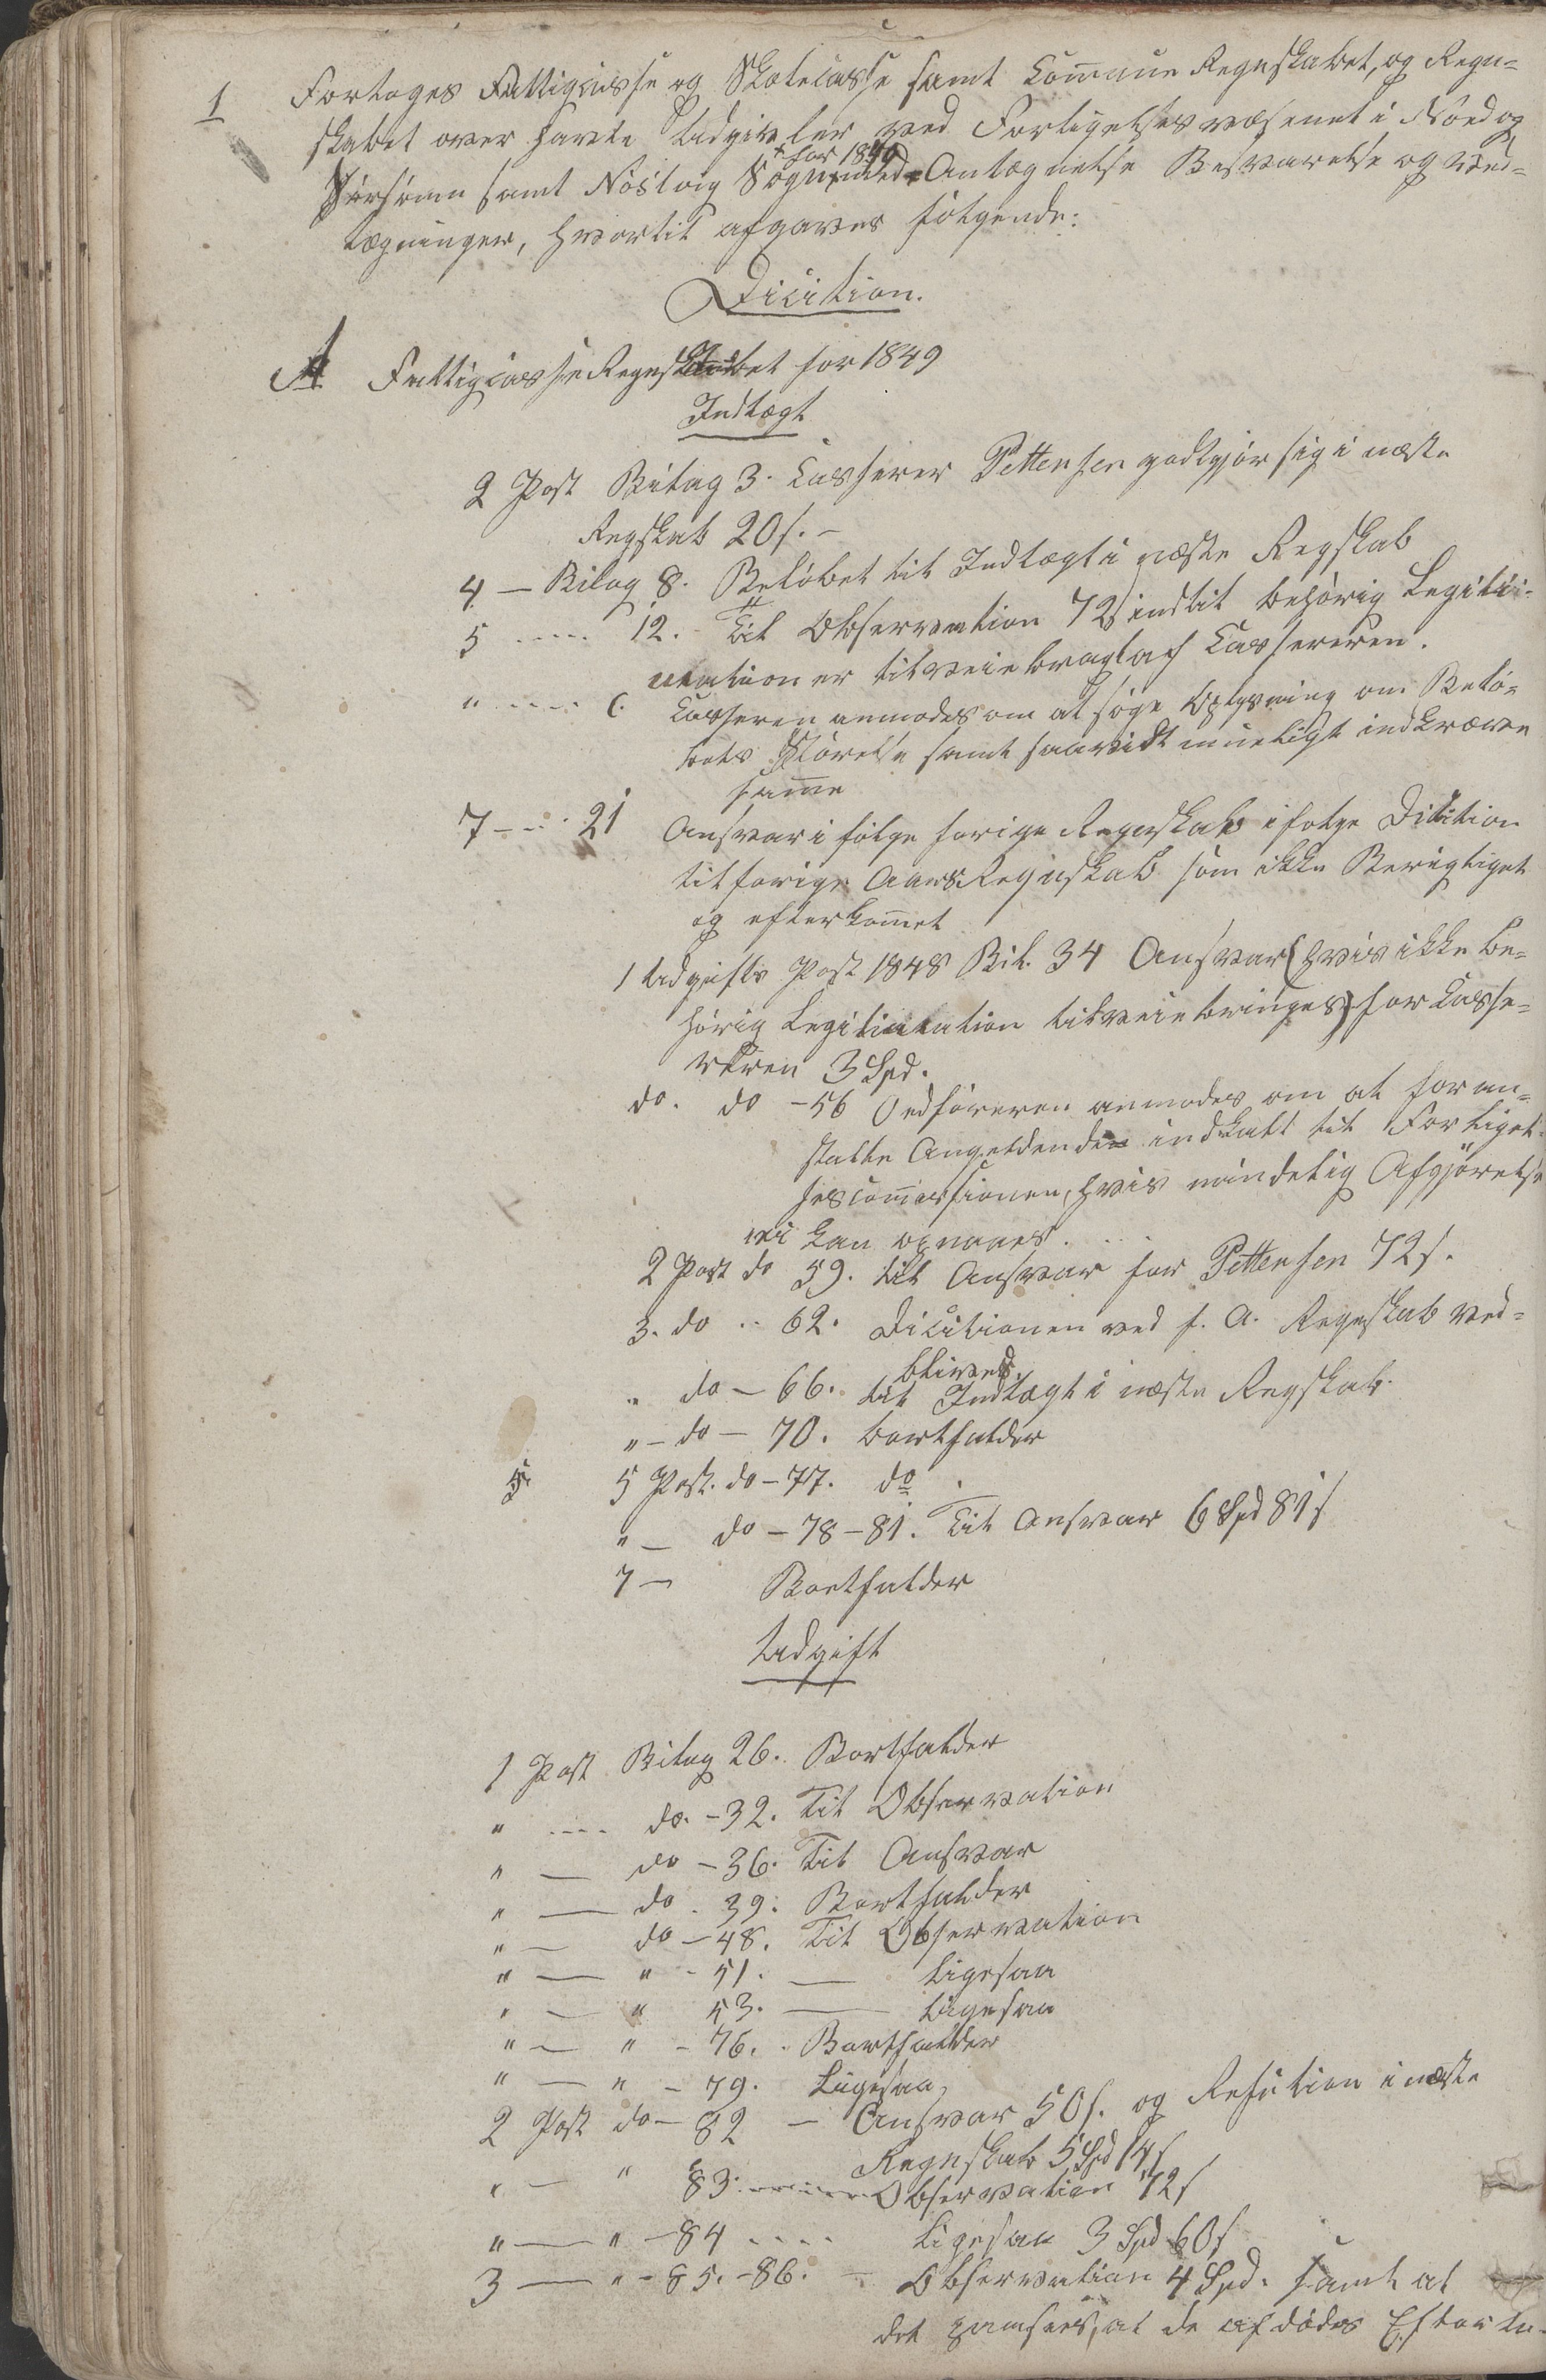 1 Fortoges Fattigcasse og Skolecasse samt Commune Regnskabet, og Regn-
skabet over havte Udgivter ved Forligelsesvæsenet i Nord og
+ for 1849
Sørhønn samt Nösvig Sogn, med Antegnelse Besvarelse og Ved-
tegninger, hvortil afgaves følgende:
Dicition.
A Fattigcasse Regnskabet for 1849
Indtægt
2 Post Bilag 3. Casserer Pettersen godtgjør sig i næste
Regskab 20 s. -
4 — Bilag 8. Beløbet til Indtægt i næste Regskab
5 ..... 12. Til Observation 72 s indtil behörig Legiti-
mation er tilveiebragt af Cassereren.
" ..... C. Cassereren anmodes om at søge Oplysning om Belø-
bets Størelse samt saavidt mueligt indkræve
samme
7 -... 21 Ansvar ifölge forige Regnskab ifølge Dicition
til forige Aars Regnskab som ikke Berigtiget
og efterkommet
1 Udgifts Post 1848 Bil. 34 Ansvar (hvis ikke be-
hørig Legitimation tilveiebringes) for Casse-
reren 3 Spd.
do. do - 56 Ordføreren anmodes om at foran-
stalte Angeldende indkaldt til Forligel-
sescommissionen, hvis mindelig Afgjørelse
ei kan opnaaes.
2 Post do 59. til Ansvar for Pettersen 72 s.
3. do .. 62. Dicitionen ved f. A. Regnskab ved-
bliver.
" do — 66. til Indtægt i næste Regskab.
" — do — 70. bortfalder
5. 5 Post. do — 77. do.
" — do — 78 - 81. Til Ansvar 6 Spd 81 s
7 — Bortfalder
Udgift
1 Post Bilag 26. Bortfalder
" .... do. - 32. Til Observation
" — do - 36. Til Ansvar
" — do . 39. Bortfalder
" — do - 48. Til Observation
" — " - 51. — ligesaa
" — " 53. — ligesaa
" — " - 76. . Bortfalder
" — " - 79. Ligesaa
2 Post do - 82 - Ansvar 50 s. og Refution i næste
Regnskab 5 Spd 14 s
" — " 83. ....... Observation 72 s
" — " - 84 .... Ligesaa 3 Spd 60 s
3 — " - 85. - 86. — Observation 4 Spd. samt at
det paasees, at de afdødes Efterla-